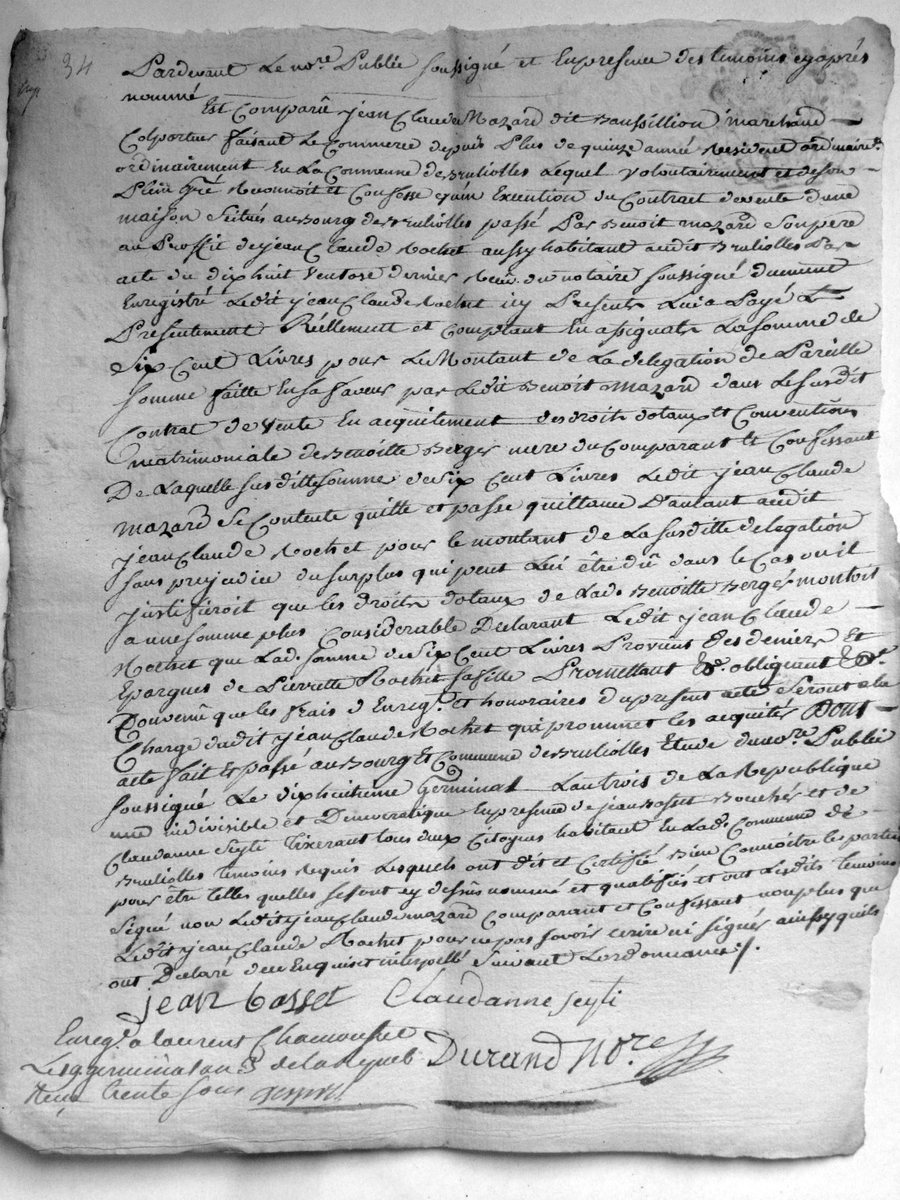 34
Pardevant Le no.re Publiè soussigné et En presence des temoins cy aprés
nommé
Est Comparû jean Claude Mazard dit Baussillion marchand
Colporteur faisant Le Commerce depuis Plus de quinze année Resident
ordinairement En La Commune de Brulliolles Lequel Volontairement et de son
Plein Gré Reconnoit et Confesse qu'en Execution du Contract de vente d'une
maison Scitués au Bourg de Brulliolles passé Par Benoit mazard son pere
au Proffit de jean Claude Rochet aussy habitant audit Brulliolles Par
acte du dix huit Ventose dernier Reçu du notaire soussigné duement
Enregistré Ledit jean Claude Rochet icy Present Lui a Payé
Presentement Réellement et Comptant En assignats La somme de
Six Cent Livres pour Le Montant de La delegation de Pareille
somme faitte En sa faveur par Ledit Benoit Mazard dans Le susdit
Contrat de Vente En acquittement des droits dotaux Et Conventions
matrimoniale de Benoitte Berger mere du Comparant Et Confessant
De Laquelle susditte somme de Six Cent Livres Ledit jean Claude
mazard se Contente quitte et passe quittance D'autant audit
jean Claude Rochet pour le montant de La susditte delegation
sans prejudice du surplus qui peut Lui être dû dans le Cas ou il
justifieroit que les droits dotaux de Lad. Benoitte Berger montoit
a une somme plus Considerable Declarant Ledit jean Claude
Rochet que Lad. somme de Six Cent Livres Provient des deniers Et
Epargnes de Pierrette Rochet sa fille Promettant &. obligeant &.
Convenû que les frais d'Enreg.t et honoraires du present acte Seront a la
Charge dudit jean Claude Rochet qui prommet les acquités Dont
acte fait Et passé au Bourg Et Commune de Brulliolles Etude du no.re Publié
soussigné Le dixhuitième Germinal L'an trois de La Republique
une indivisible et Democratique En presence de jean Basset Boucher et de
Claudanne Seyti Tixerant tous deux Citoyens habitant En Lad. Commune de
Brulliolles temoins Requis Lesquels ont dit et Certiffié Bien Connoitre les parties
pour être telles quelles se sont cy dessûs nommé et qualiffiés et ont Lesdits temoins
signé non Ledit jean Claude mazard Comparant et Confessant non plus que
Ledit jean Claude Rochet pour ne pas savoir ecrire ni signer ainsy quils
ont Declaré de ce Enquis et interpellé Suivant Les ordonnances /.
jean basset Claudanne seyti
Enreg.é a Laurent Chamousset
Le 19 germinal an 3 de la Repub. Durand No.re
Reçu trente sous